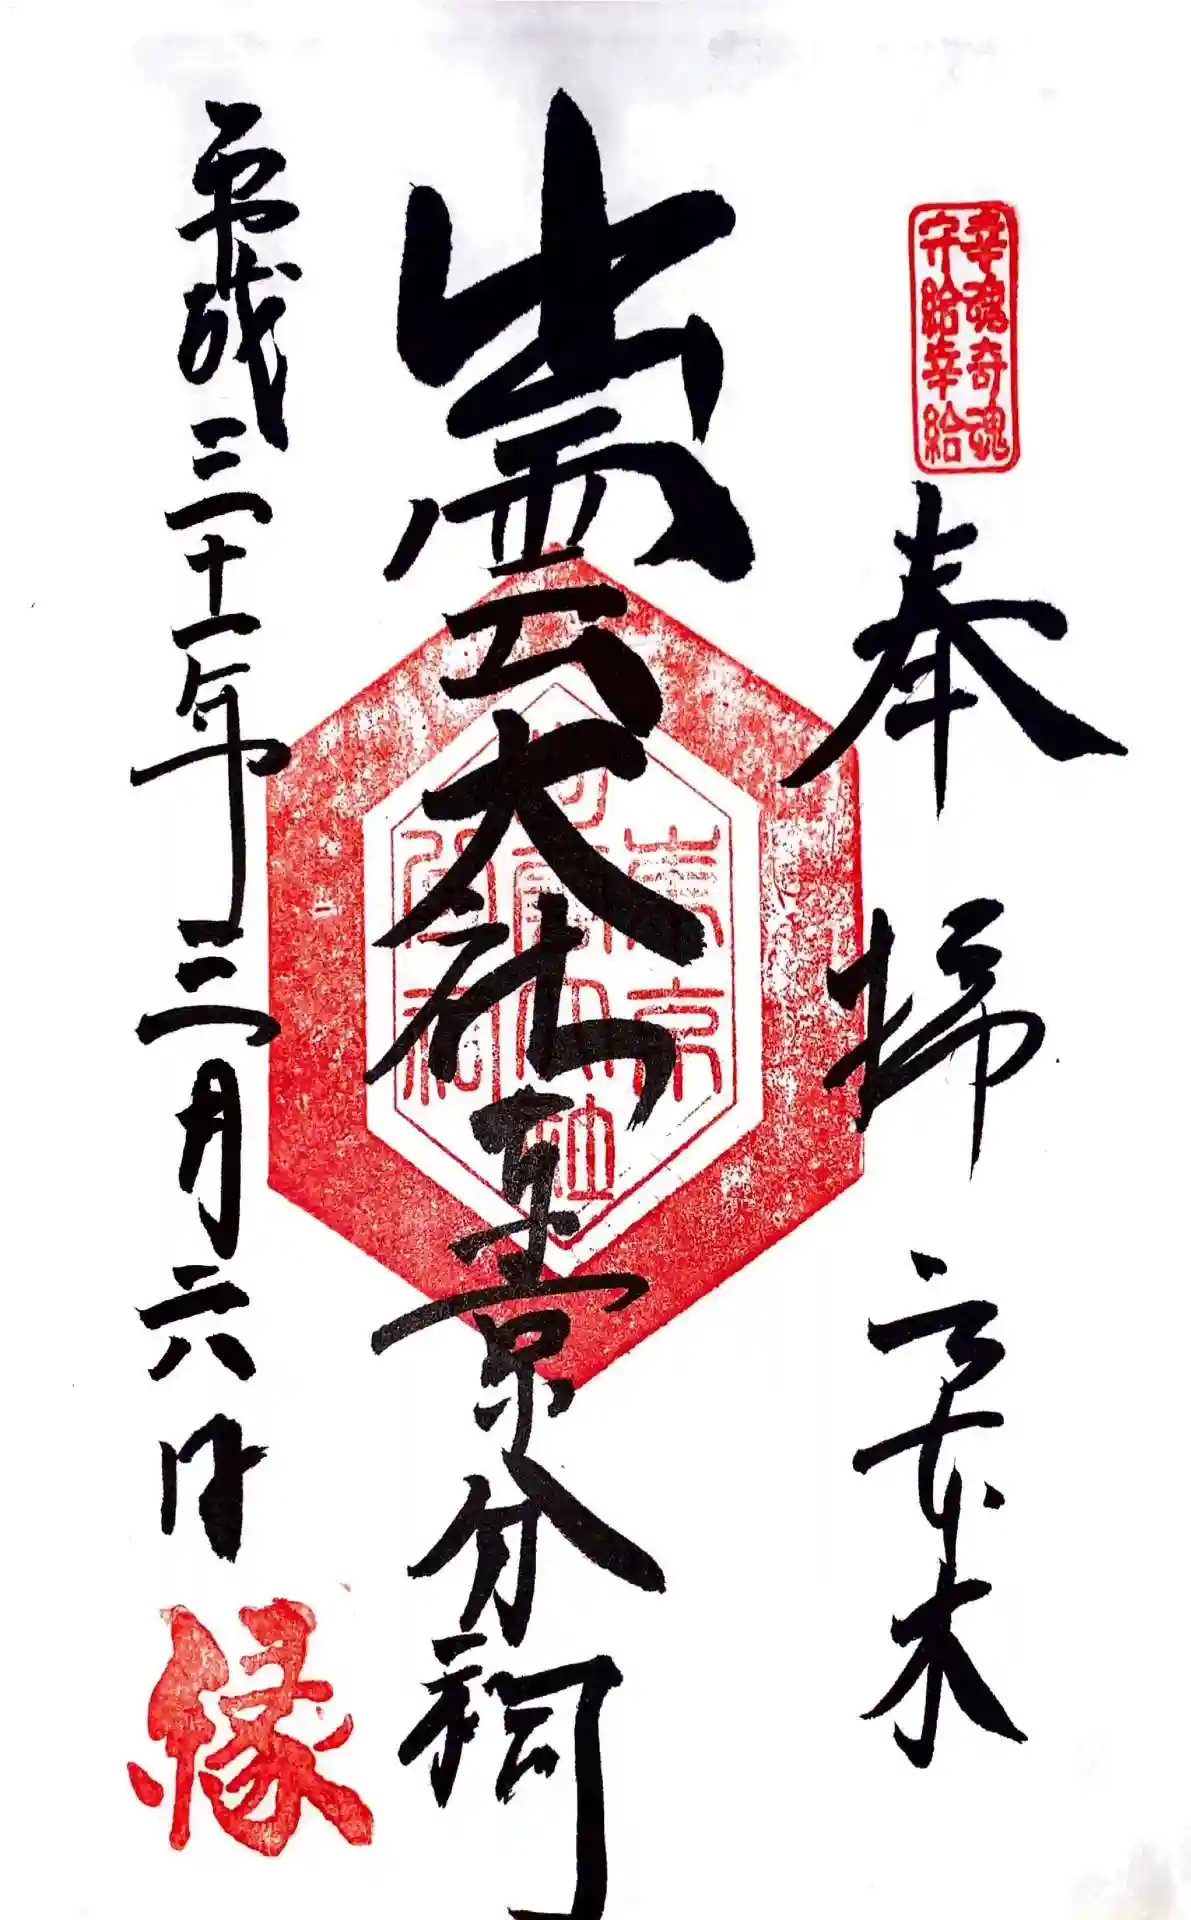 幸魂奇魂
守給幸給
奉拝 六本木
出雲大社東京分祠
東京
出雲大社
分祠
平成三十一年三月六日
縁